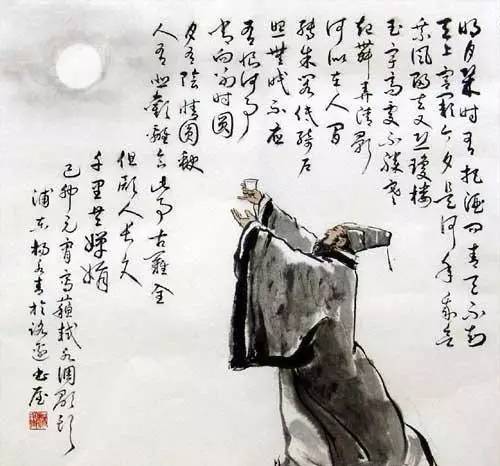 明月幾时有把酒问青天不知
天上宫阙今夕是何年我欲
乘风归去又恐瓊楼
玉宇高處不勝寒
起舞弄清影
何似在人間
转朱阁低绮户
照无眠不应
有恨何事
长向别时圆
月有陰晴圓缺
人有悲歡離合此事古難全
但願人长久
千里共嬋娟
己卯元宵寫蘇軾水调歌头
浦东杨春於書屋